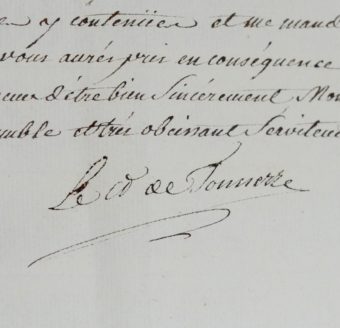 y contenües et me mand
vous aurés pris en conséquence
d'être bien Sincérement Mon
umble et très obeissant Serviteu
Le Cte de Tonnerre